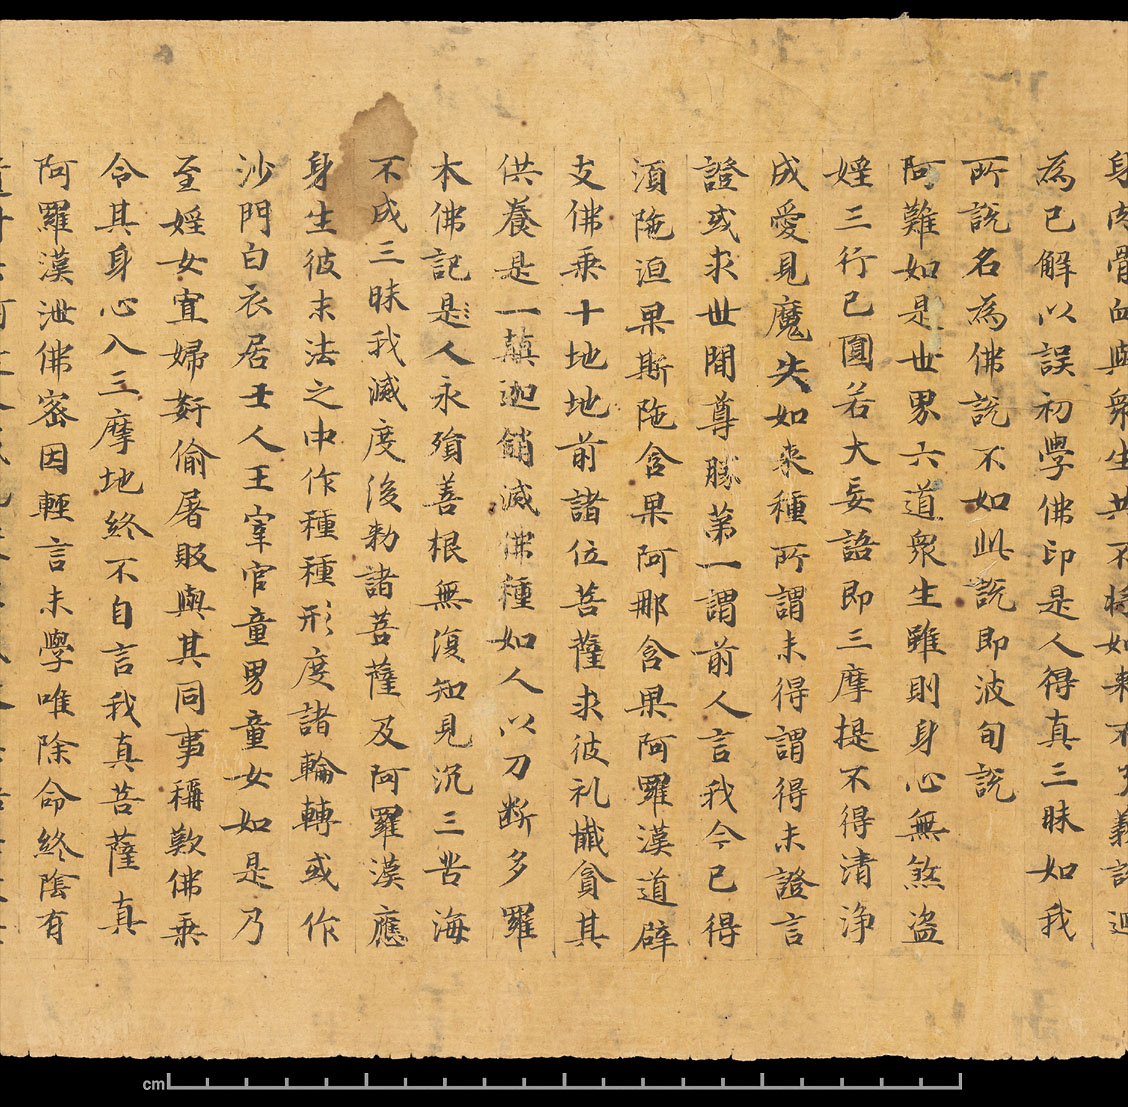 身肉骨血與衆生共不將如來不了義說迴
為已解以誤初學佛印是人得真三昧如我
所說名為佛說不如此說即波旬說
阿難如是世界六道衆生雖則身心無煞盗
婬三行已圓若大妄語即三摩提不得清淨
成愛見魔失如來種所謂未得謂得未證言
證或求世間尊勝第一謂前人言我今已得
湏陁洹果斯陁含果阿那含果阿羅漢道辟
支佛乗十地地前諸位菩薩求彼礼懴貪其
供養是一顛迦銷滅佛種如人以刀断多羅
木佛記是人永殞善根無復知見沉三苦海
不成三昧我滅度後勑諸菩薩及阿羅漢應
身生彼末法之中作種種形度諸輪轉或作
沙門白衣居士人王宰官童男童女如是乃
至婬女寡婦姧偷屠販與其同事稱歎佛乗
令其身心入三摩地終不自言我真菩薩真
阿羅漢泄佛宻因輕言未學唯除命終陰有